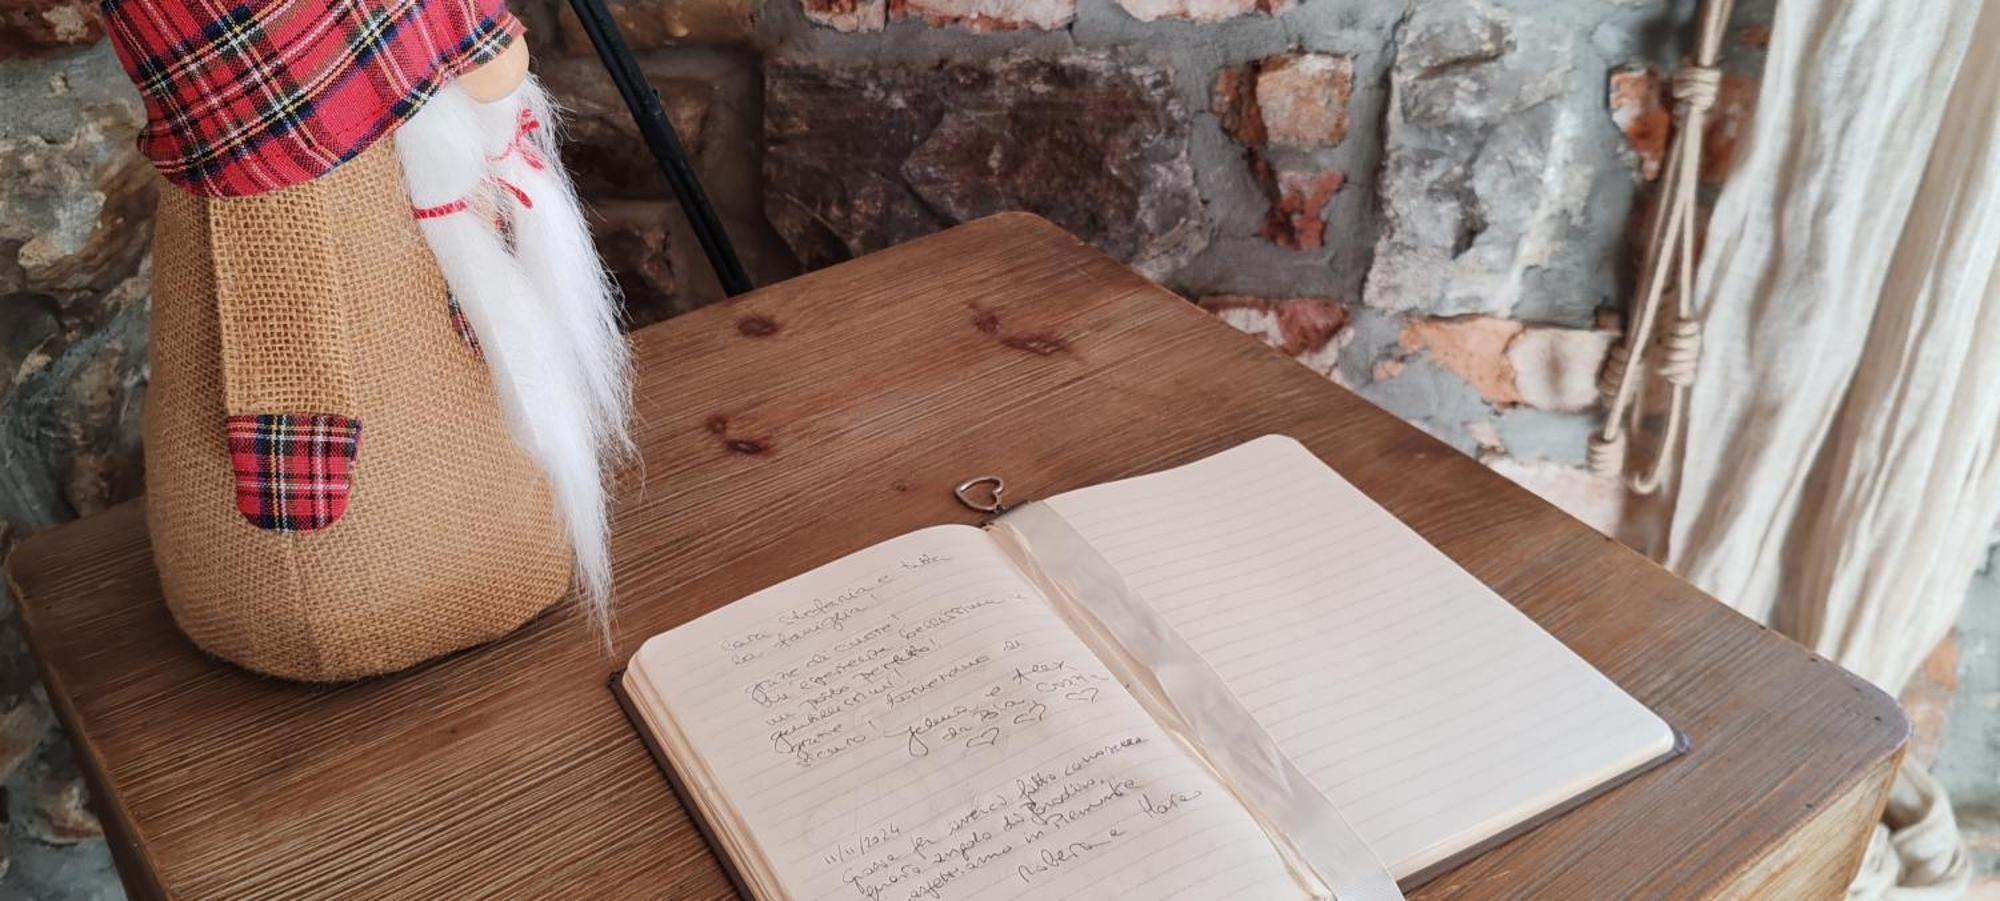 Cara Stefania e tutta
la famiglia!
grazie di cuore!
Un'esperienza bellissima e
un posto perfetto!
gentilissimi!
grazie! Torneremo di
sicuro! e Alex
da Bia Cristia
11/11/2024
Grazie per averci fatto conoscere
questo angolo di Paradiso,
aspettiamo in Piemonte
Roberta e Marco